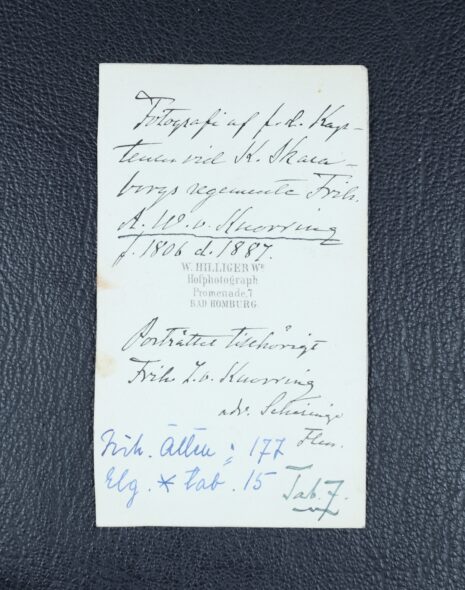 Fotografi af f. d. Kap-
tenen vid K. Skara-
borgs regemente Frih.
A. W. v. Knorring
f. 1806 d. 1887.
W. HILLIGER We
Hofphotograph
Promenade, 7
BAD HOMBURG.
Porträttet tillhörigt
Frih. v. Knorring
adr.
Frih. Ätten : 177
Elg. * tab. 15
Tab. 7.